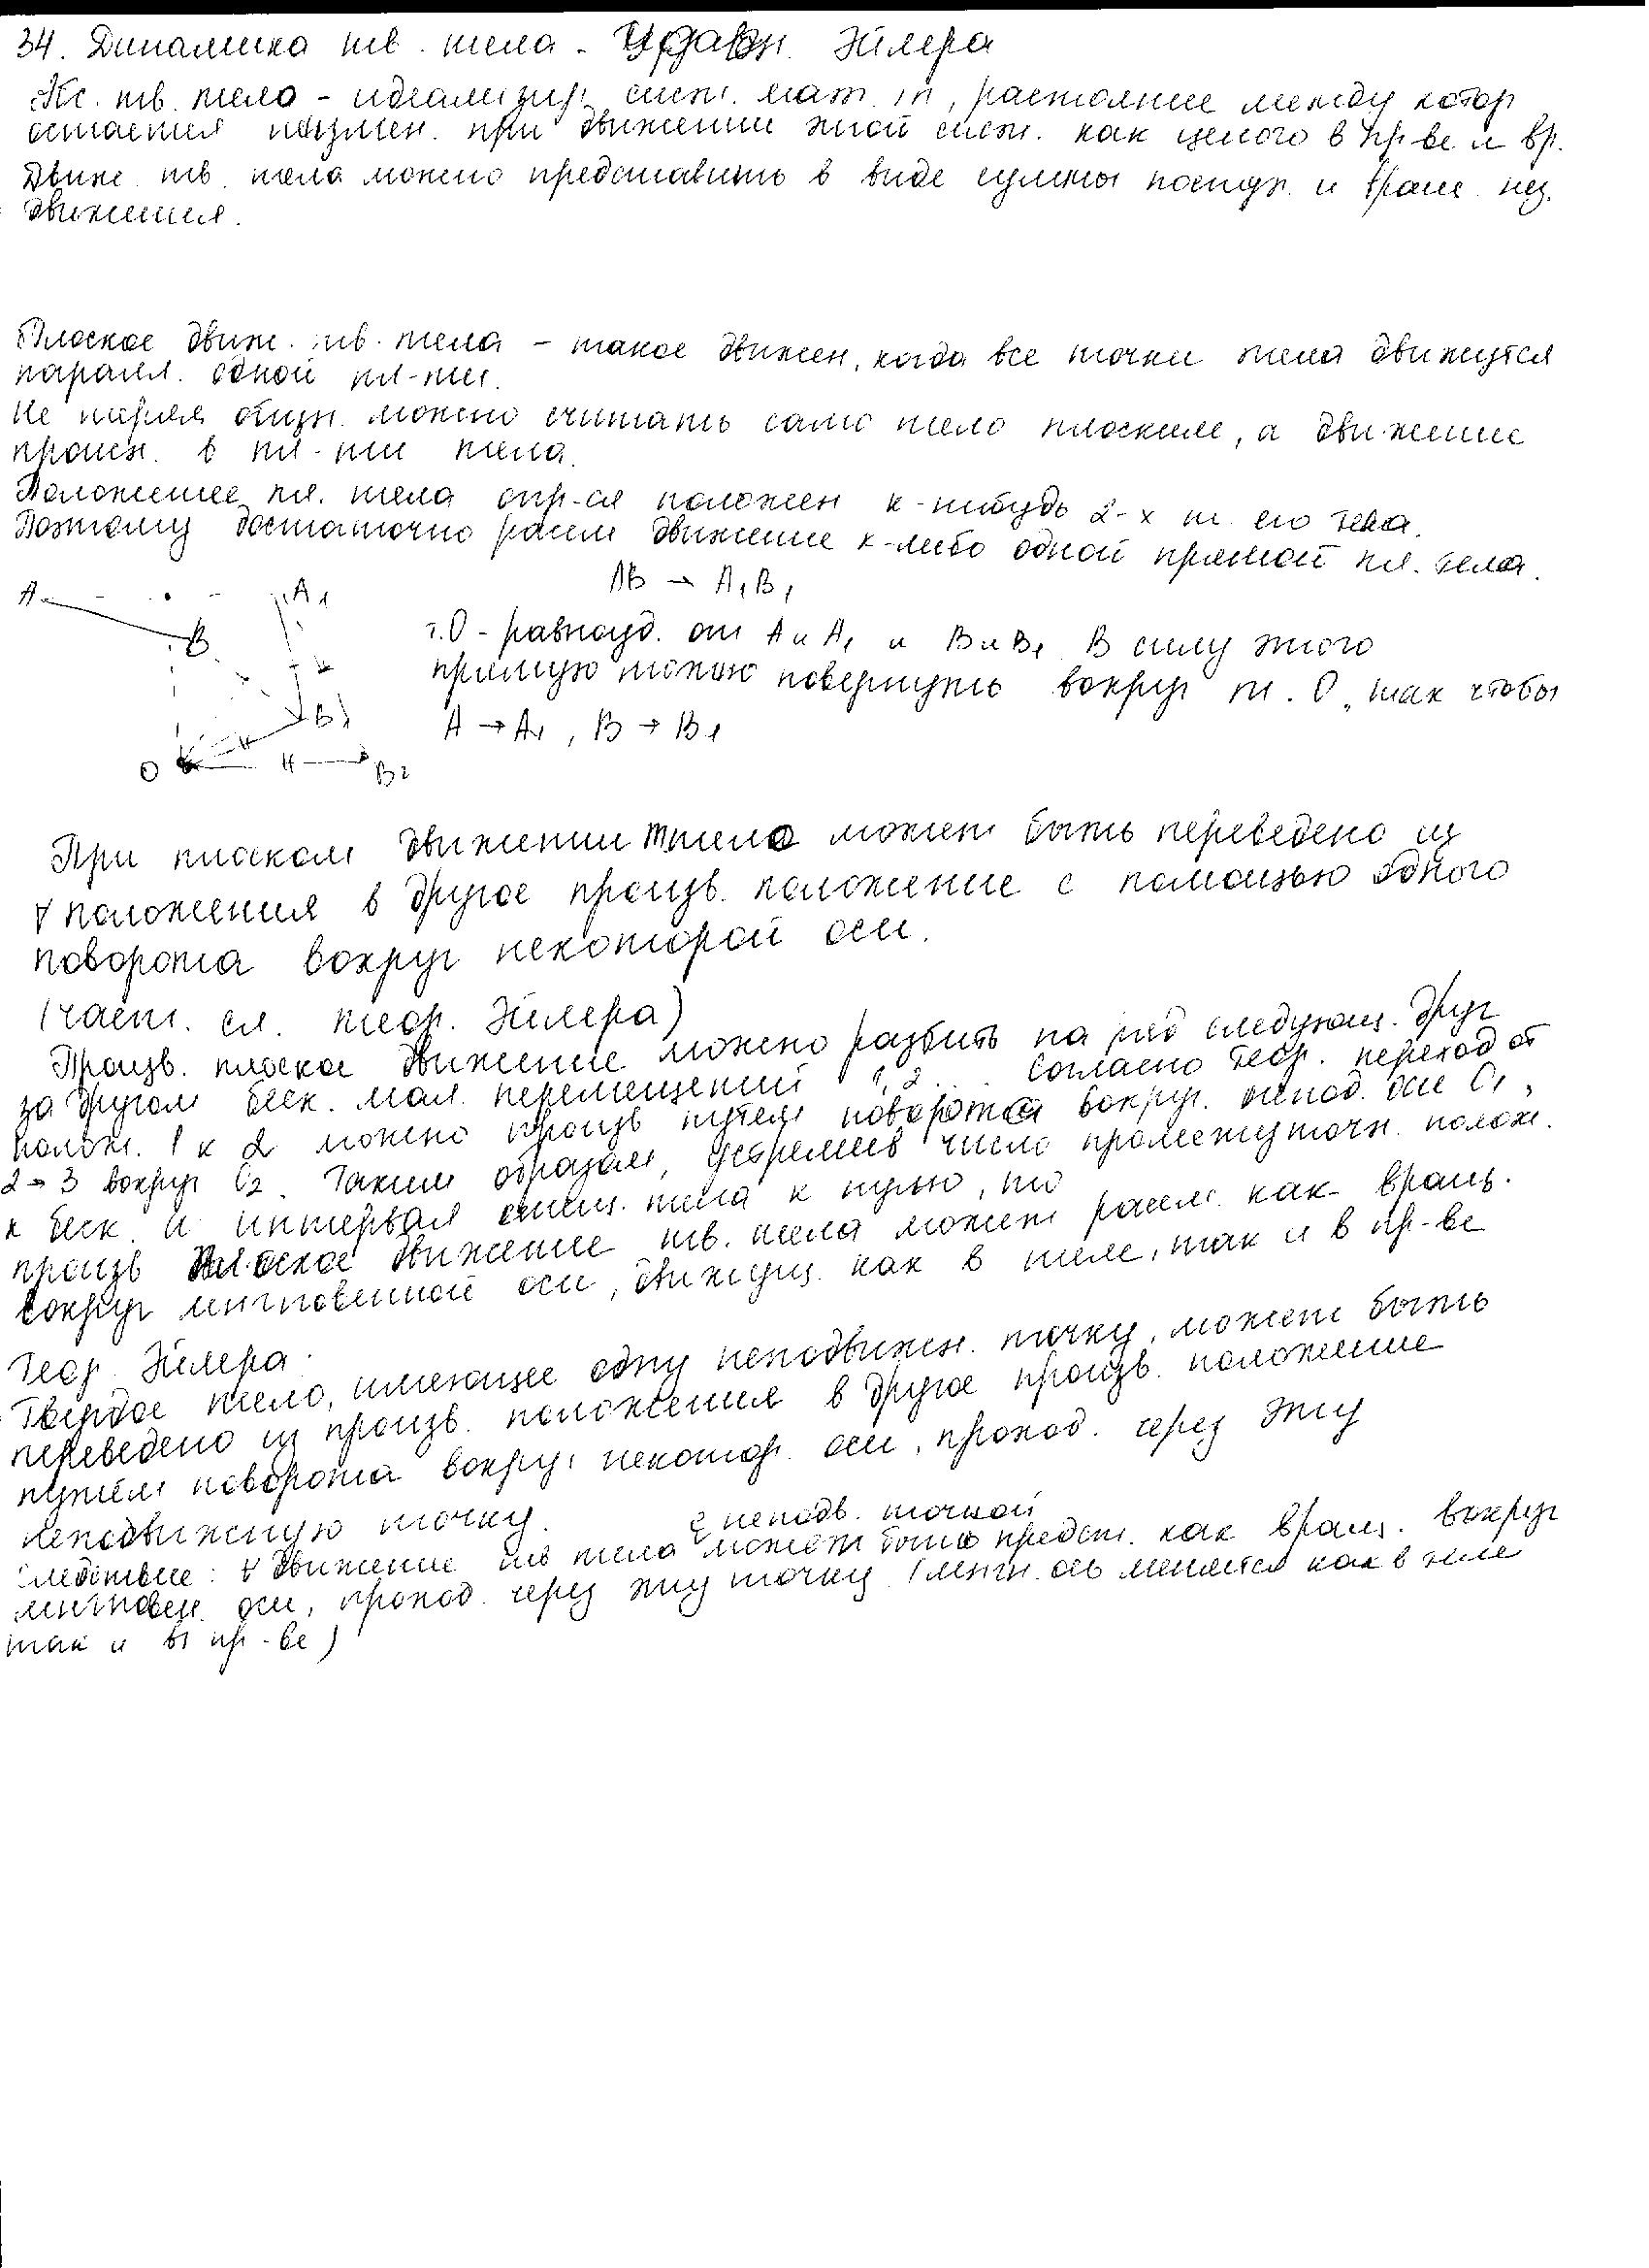 34. Динамика тв. тела. Уравн. Эйлера
Абс. тв. тело - идеализир. сист. мат. т, расстояние между котор
остается неизмен. при движении этой сист. как целого в пр-ве и вр.
Движ. тв. тела можно представить в виде суммы поступ. и вращ. нез.
движения.
Плоское движ. тв. тела - такое движен, когда все точки тела движутся
паралл. одной пл-ти.
Не теряя общн. можно считать само тело плоским, а движение
происх. в пл-ти тела.
Положение пл. тела опр-ся положен к-нибудь 2-х т. его тела.
Поэтому достаточно рассм движение к-либо одной прямой пл. тела.
AB → A₁B₁
A A₁
B
т.О - равноуд. от А и А₁ и В и В₁. В силу этого
прямую можно повернуть вокруг т. О, так чтобы
B₁
A → A₁, B → B₁
O B₂
При плоском движении тело может быть переведено из
∀ положения в другое произв. положение с помощью одного
поворота вокруг некоторой оси.
(част. сл. теор. Эйлера)
Произв. плоское движение можно разбить на ряд следующ. друг
за другом беск. мал. перемещений 1, 2 ... Согласно теор. переход от
полож. 1 к 2 можно произв путем поворота вокруг. непод. оси О₁,
2→3 вокруг О₂. Таким образом, устремив число промежуточн. полож.
к беск. и интервал смещ. тела к нулю, то
произв плоское движение тв. тела может рассм. как вращ.
вокруг мгновенной оси, движущ. как в теле, так и в пр-ве
Теор. Эйлера.
Твердое тело, имеющее одну неподвижн. точку, может быть
переведено из произв. положения в другое произв. положение
путём поворота вокруг некотор. оси, проход. через эту
неподвижную точку.
с неподв. точкой
Следствие: ∀ движение тв тела может быть предст. как вращ. вокруг
мгновен. оси, проход. через эту точку (мгн. ось меняется как в теле
так и в пр-ве)